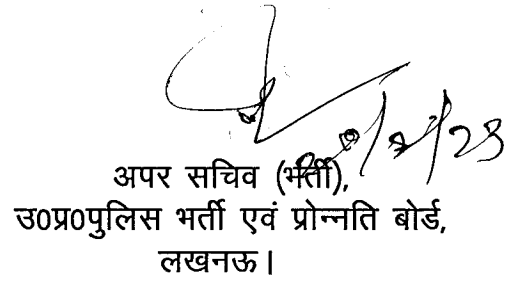 अपर सचिव (भर्ती),
उ0प्र0पुलिस भर्ती एवं प्रोन्नति बोर्ड,
लखनऊ।